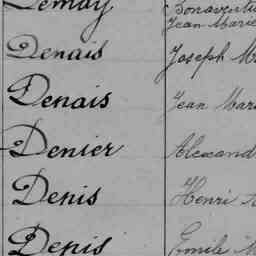 Demay Bonaventu
Jean Marie
Denais Joseph M
Denais Jean Mar
Denier Alexand
Denis Henri
Denis Emile M